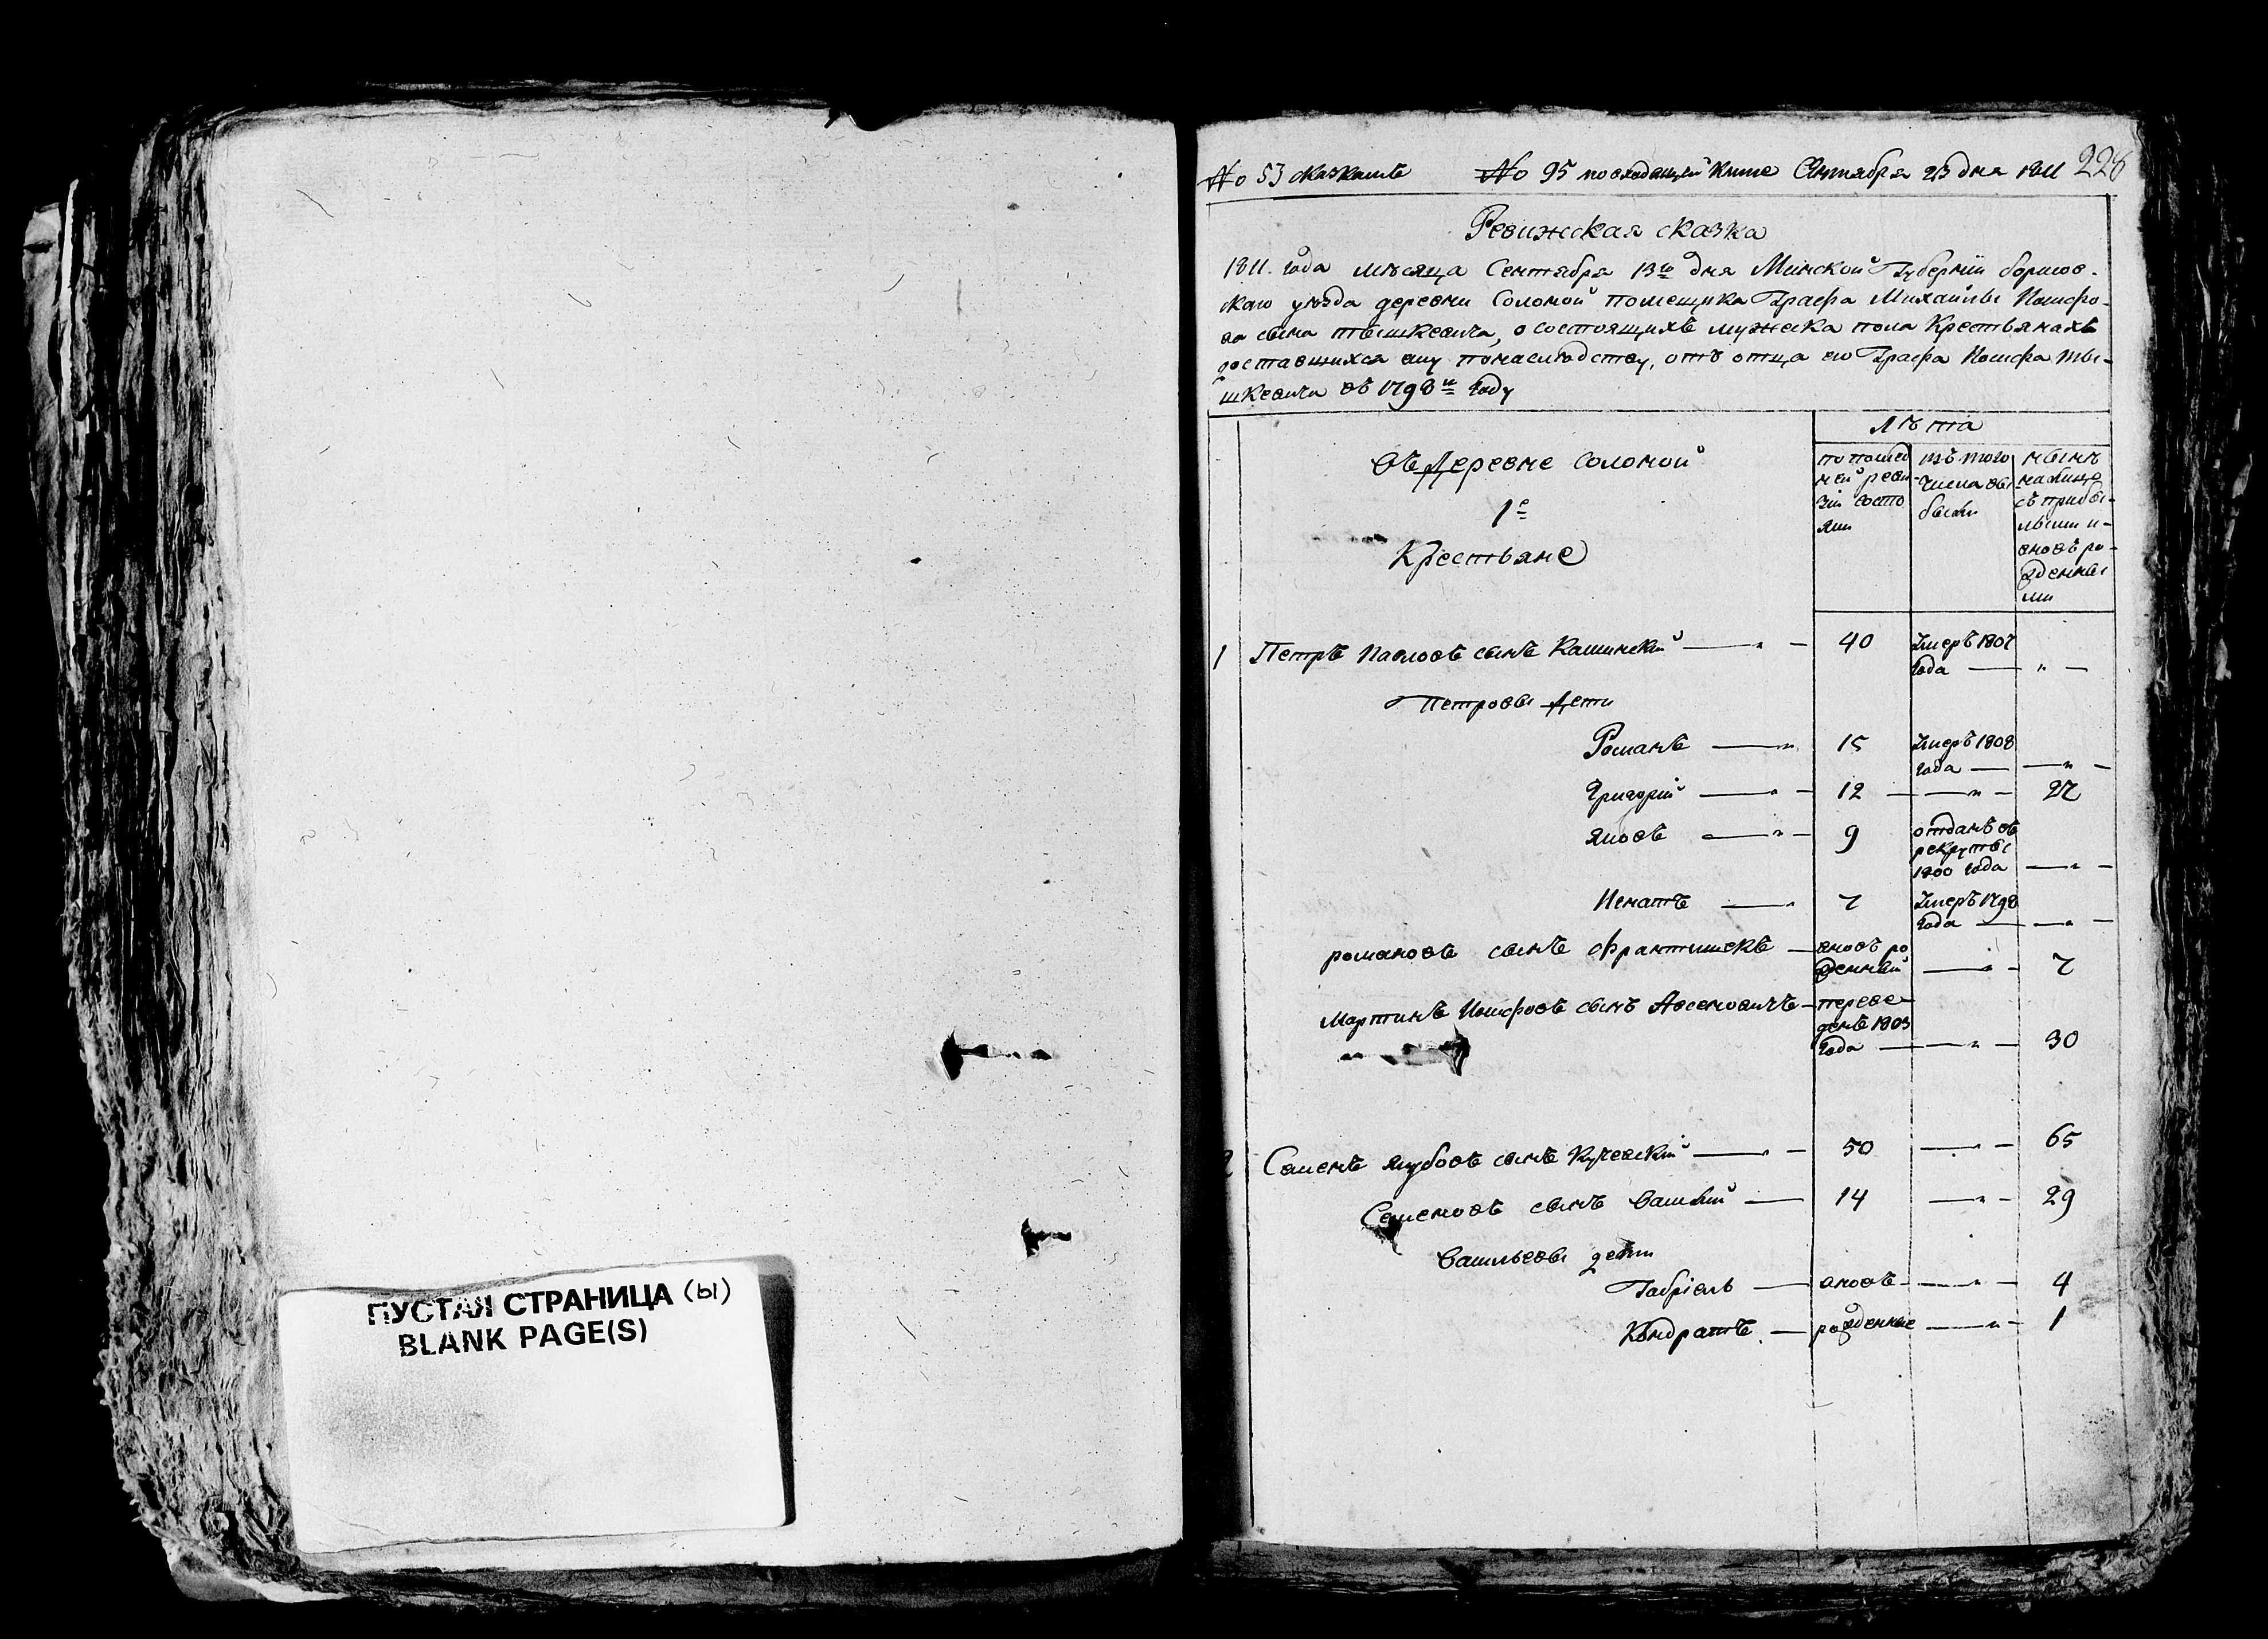 ПУСТАЯ СТРАНИЦА (ы)
BLANK PAGE(S)
№ 53 сказкамъ № 95 по входящей книге Сентября 23 дня 1811 228
Ревижская сказка
1811. года месяца Сентября 13го дня Минской Губернии борисов-
скаго уезда деревни Соломой помещика Графа Михайлы Иосифо-
ва сына тышкевича, о состоящихъ мужеска пола Крестьянахъ
доставшихся ему по наследству, отъ отца его Графа Иосифа ты-
шкевича въ 1798м году
Лѣта
Въ Деревне Соломой
1е
Крестьяне
по послед
ней реви
зіи состо
яли
изъ того
числа вы
были
нынѣ
налицо
съ прибы-
лыми и-
вновь ро-
жденны
ми
1 Петръ Павловъ сынъ Кашинский — " — 40 Умеръ 1807
года — " —
Петровы Дети
Романъ — " 15 Умеръ 1808
года — " —
Григорий — " — 12 — " — 27
Яковъ — " — 9 отданъ въ
рекруты
1800 года — " —
Игнатъ — " 7 Умеръ 1798
года — " —
романовъ сынъ Франтишекъ — вновь ро
жденный — " — 7
Мартинъ Иосифовъ сынъ Авсеновичъ — переве-
денъ 1803
года — " — 30
2 Семенъ якубовъ сынъ Кучевский — " — 50 — " — 65
Семеновъ сынъ Василий — 14 — " — 29
Васильевы дети
Габріель — вновь — " — 4
Кондратъ — рожденные — " — 1